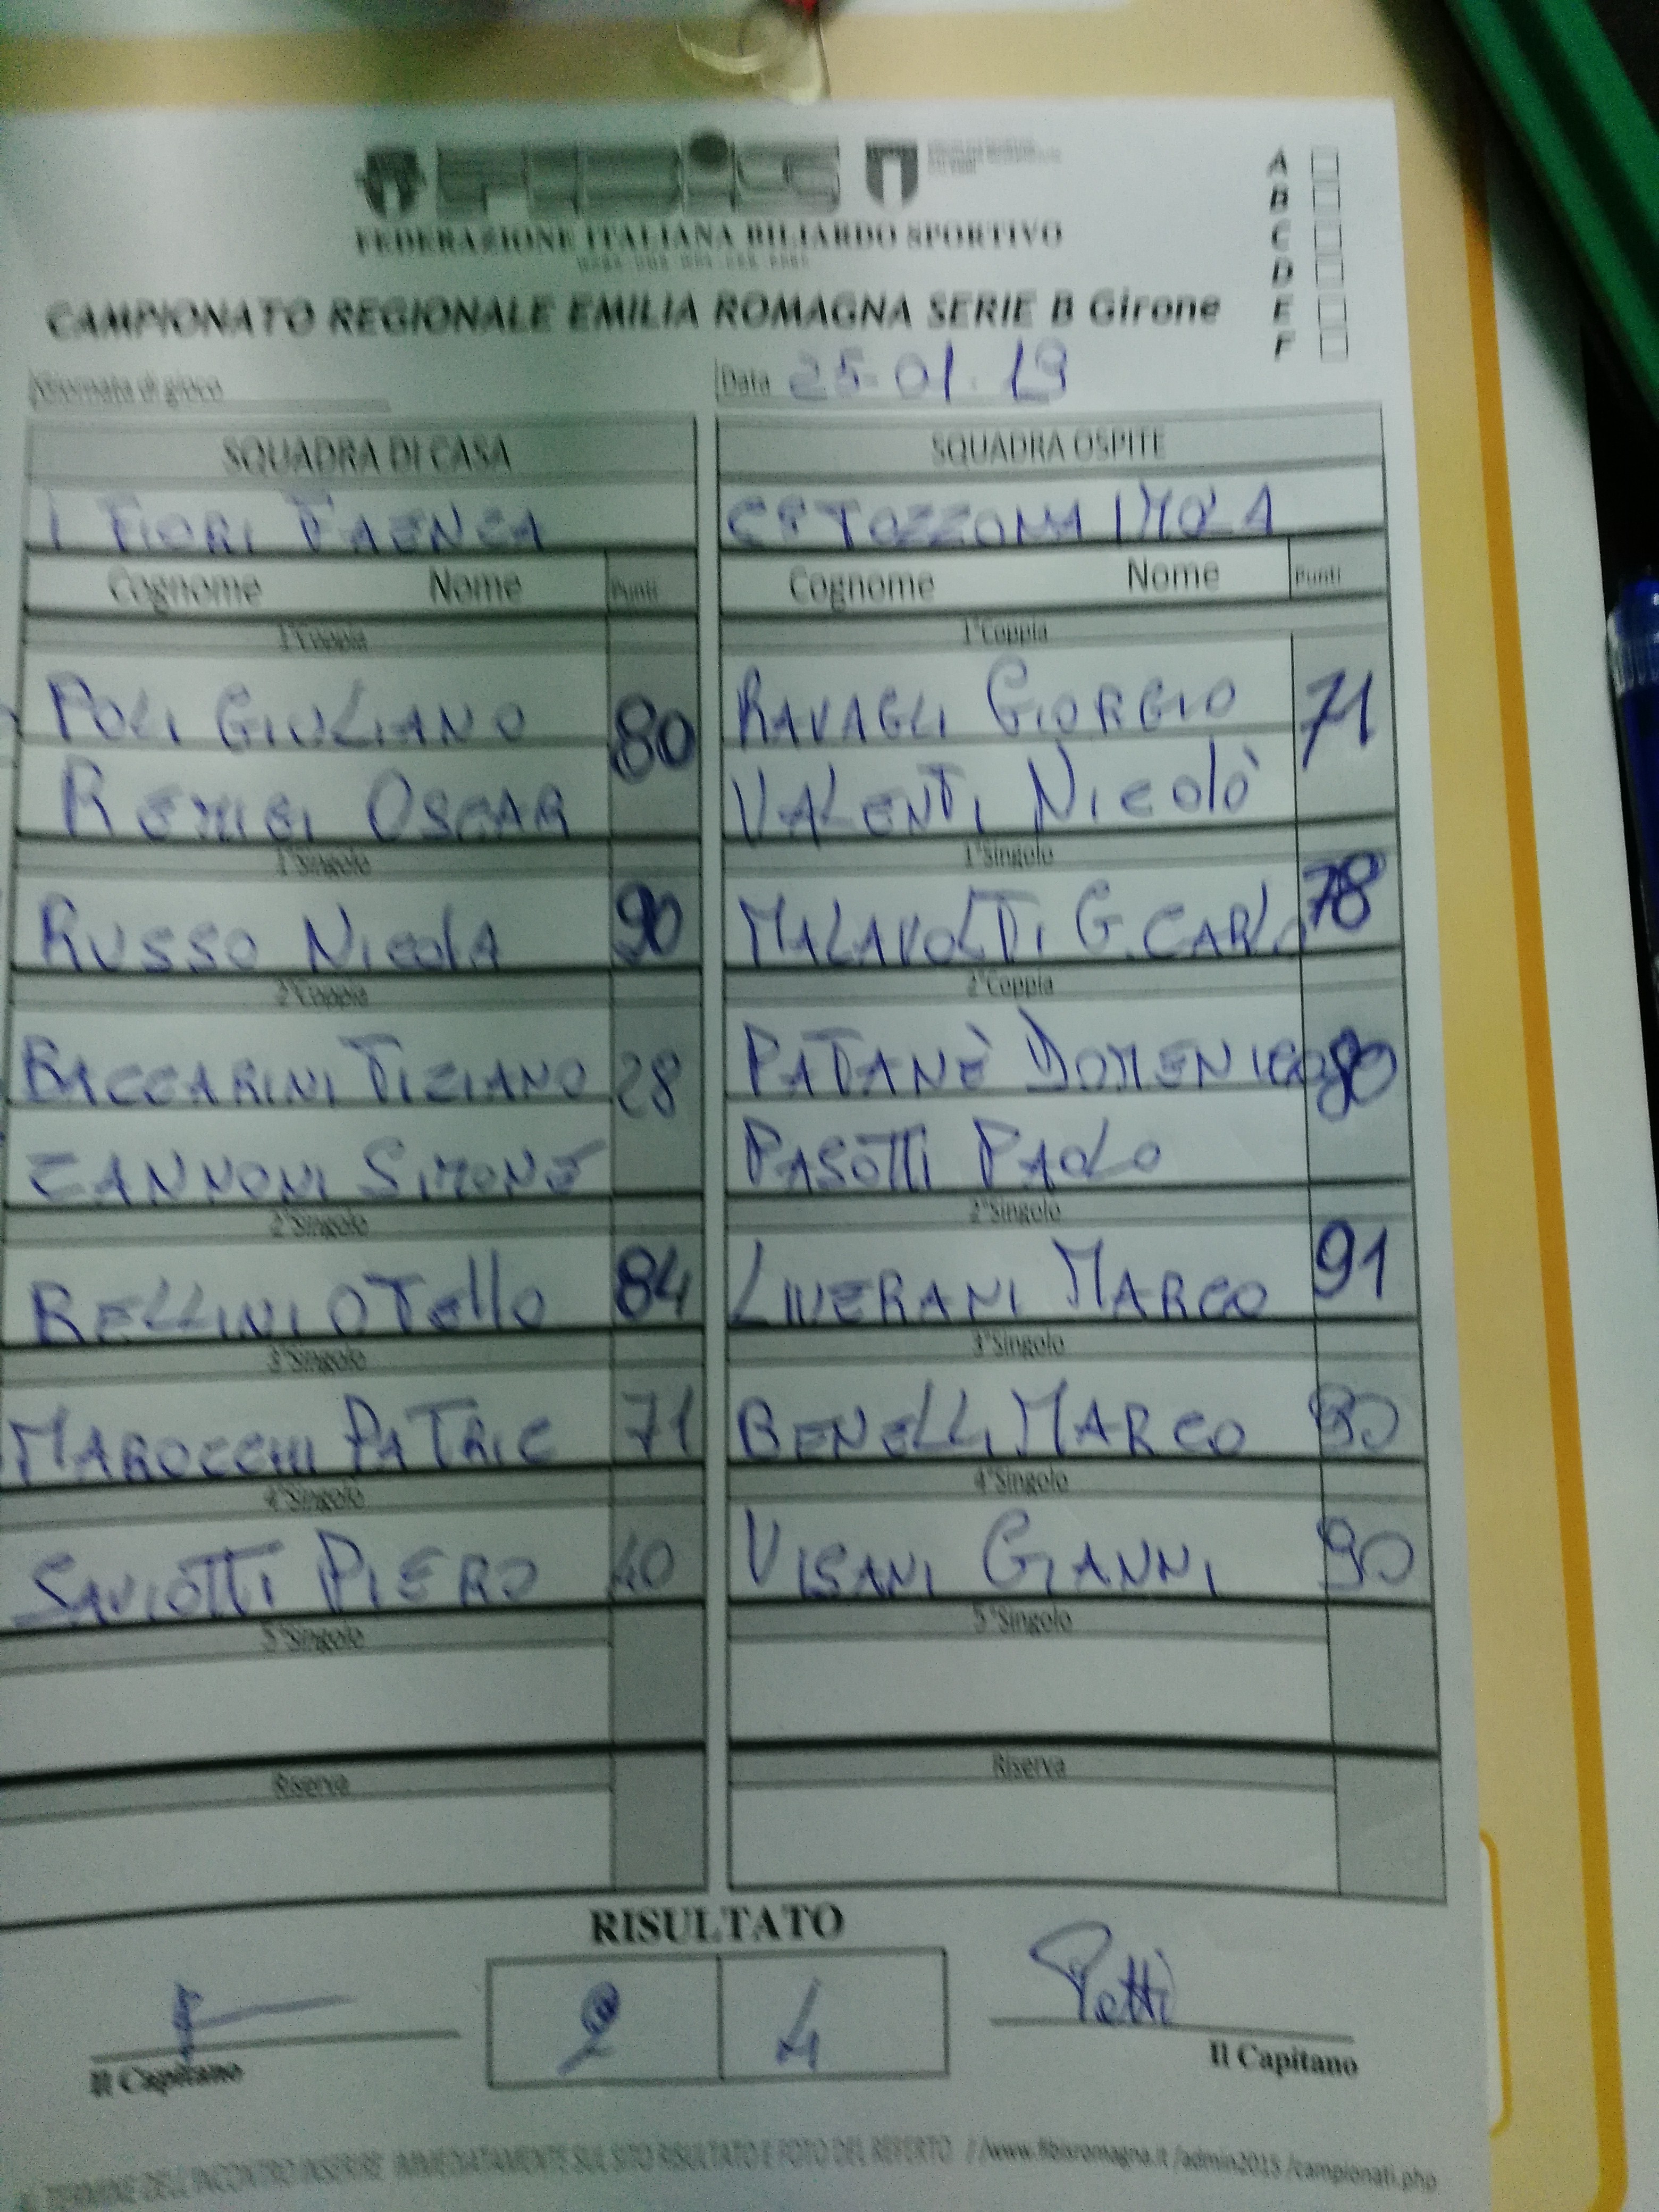 FEDERAZIONE ITALIANA BILIARDO SPORTIVO
A
B
C
D
E
F
CAMPIONATO REGIONALE EMILIA ROMAGNA SERIE B Girone
Giornata di gioco
Data 25-01-19
SQUADRA DI CASA SQUADRA OSPITE
I FIORI FAENZA CS TOZZONA IMOLA
Cognome Nome Punti Cognome Nome Punti
1°Coppia 1°Coppia
POLI GIULIANO 80 RAVAGLI GIORGIO 71
REMIGI OSCAR VALENTI NICOLÒ
1°Singolo 1°Singolo
RUSSO NICOLA 90 MALAVOLTI G.CARLO 78
2°Coppia 2°Coppia
BACCARINI TIZIANO 28 PATANÈ DOMENICO 80
ZANNONI SIMONE PASOTTI PAOLO
2°Singolo 2°Singolo
BELLINI OTELLO 84 LIVERANI MARCO 91
3°Singolo 3°Singolo
MAROCCHI PATRIC 71 BENELLI MARCO 90
4°Singolo 4°Singolo
SAVIOTTI PIERO 40 VISANI GIANNI 90
5°Singolo 5°Singolo
Riserva Riserva
RISULTATO
2 4
Il Capitano Il Capitano
TERMINE DELL'INCONTRO INSERIRE IMMEDIATAMENTE SUL SITO RISULTATO E FOTO DEL REFERTO //www.fibisromagna.it/admin2015/campionati.php